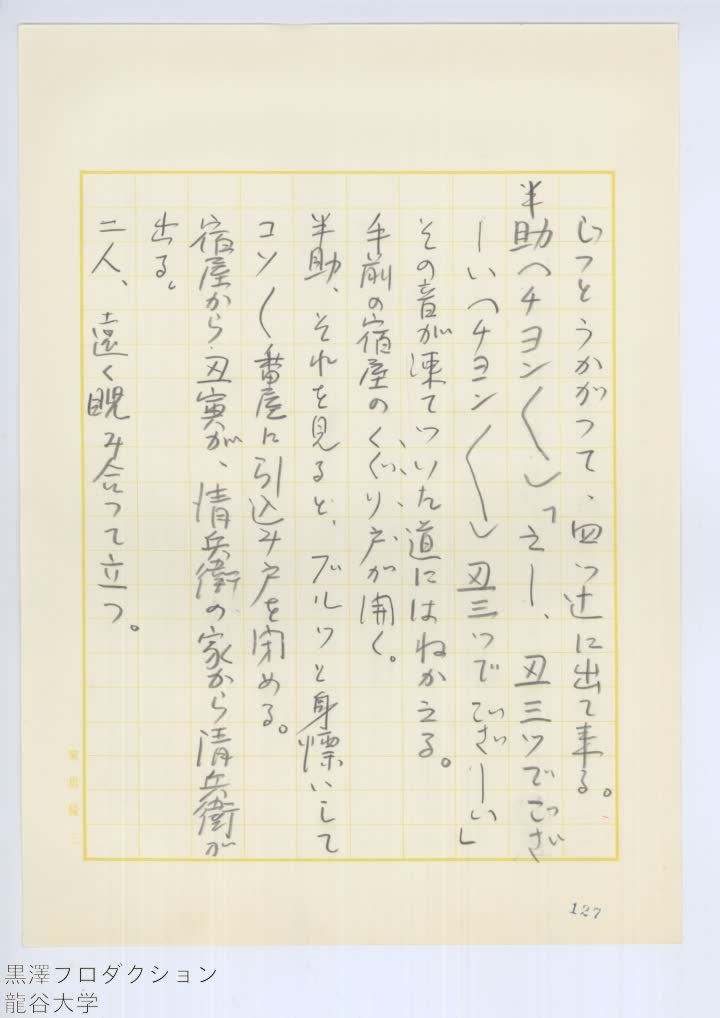 じつとうかがつて、四つ辻に出て来る。
半助へチヨン〱し「えー、丑三ツでござ
ーいへチヨン〱し丑三ツでござーい」
その音が凍てついた道にはねかえる。
手前の宿屋のくぐり戸が開く。
半助、それを見ると、ブルツと身慄いして
コソ〱番屋に引込み戸を閉める。
宿屋から丑寅が、清兵衛の家から清兵衛が
出る。
二人、遠く睨み合つて立つ。
127
黒澤プロダクション
龍谷大学